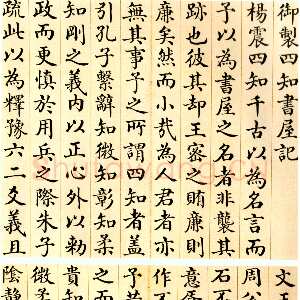 御製四知書屋記
楊震四知千古以為名言而
予以為書屋之名者非襲其
跡也彼其却王密之賄廉則
廉矣然而小哉為人君者亦
無其事予之所謂四知者蓋
引孔子繫辭知微知彰知柔
知剛之義内以正心外以勅
政而更慎於用兵之際朱子
疏此以為釋豫六二爻義且
文
周公
石不
意
作不
之而
貴知
微柔
陰静